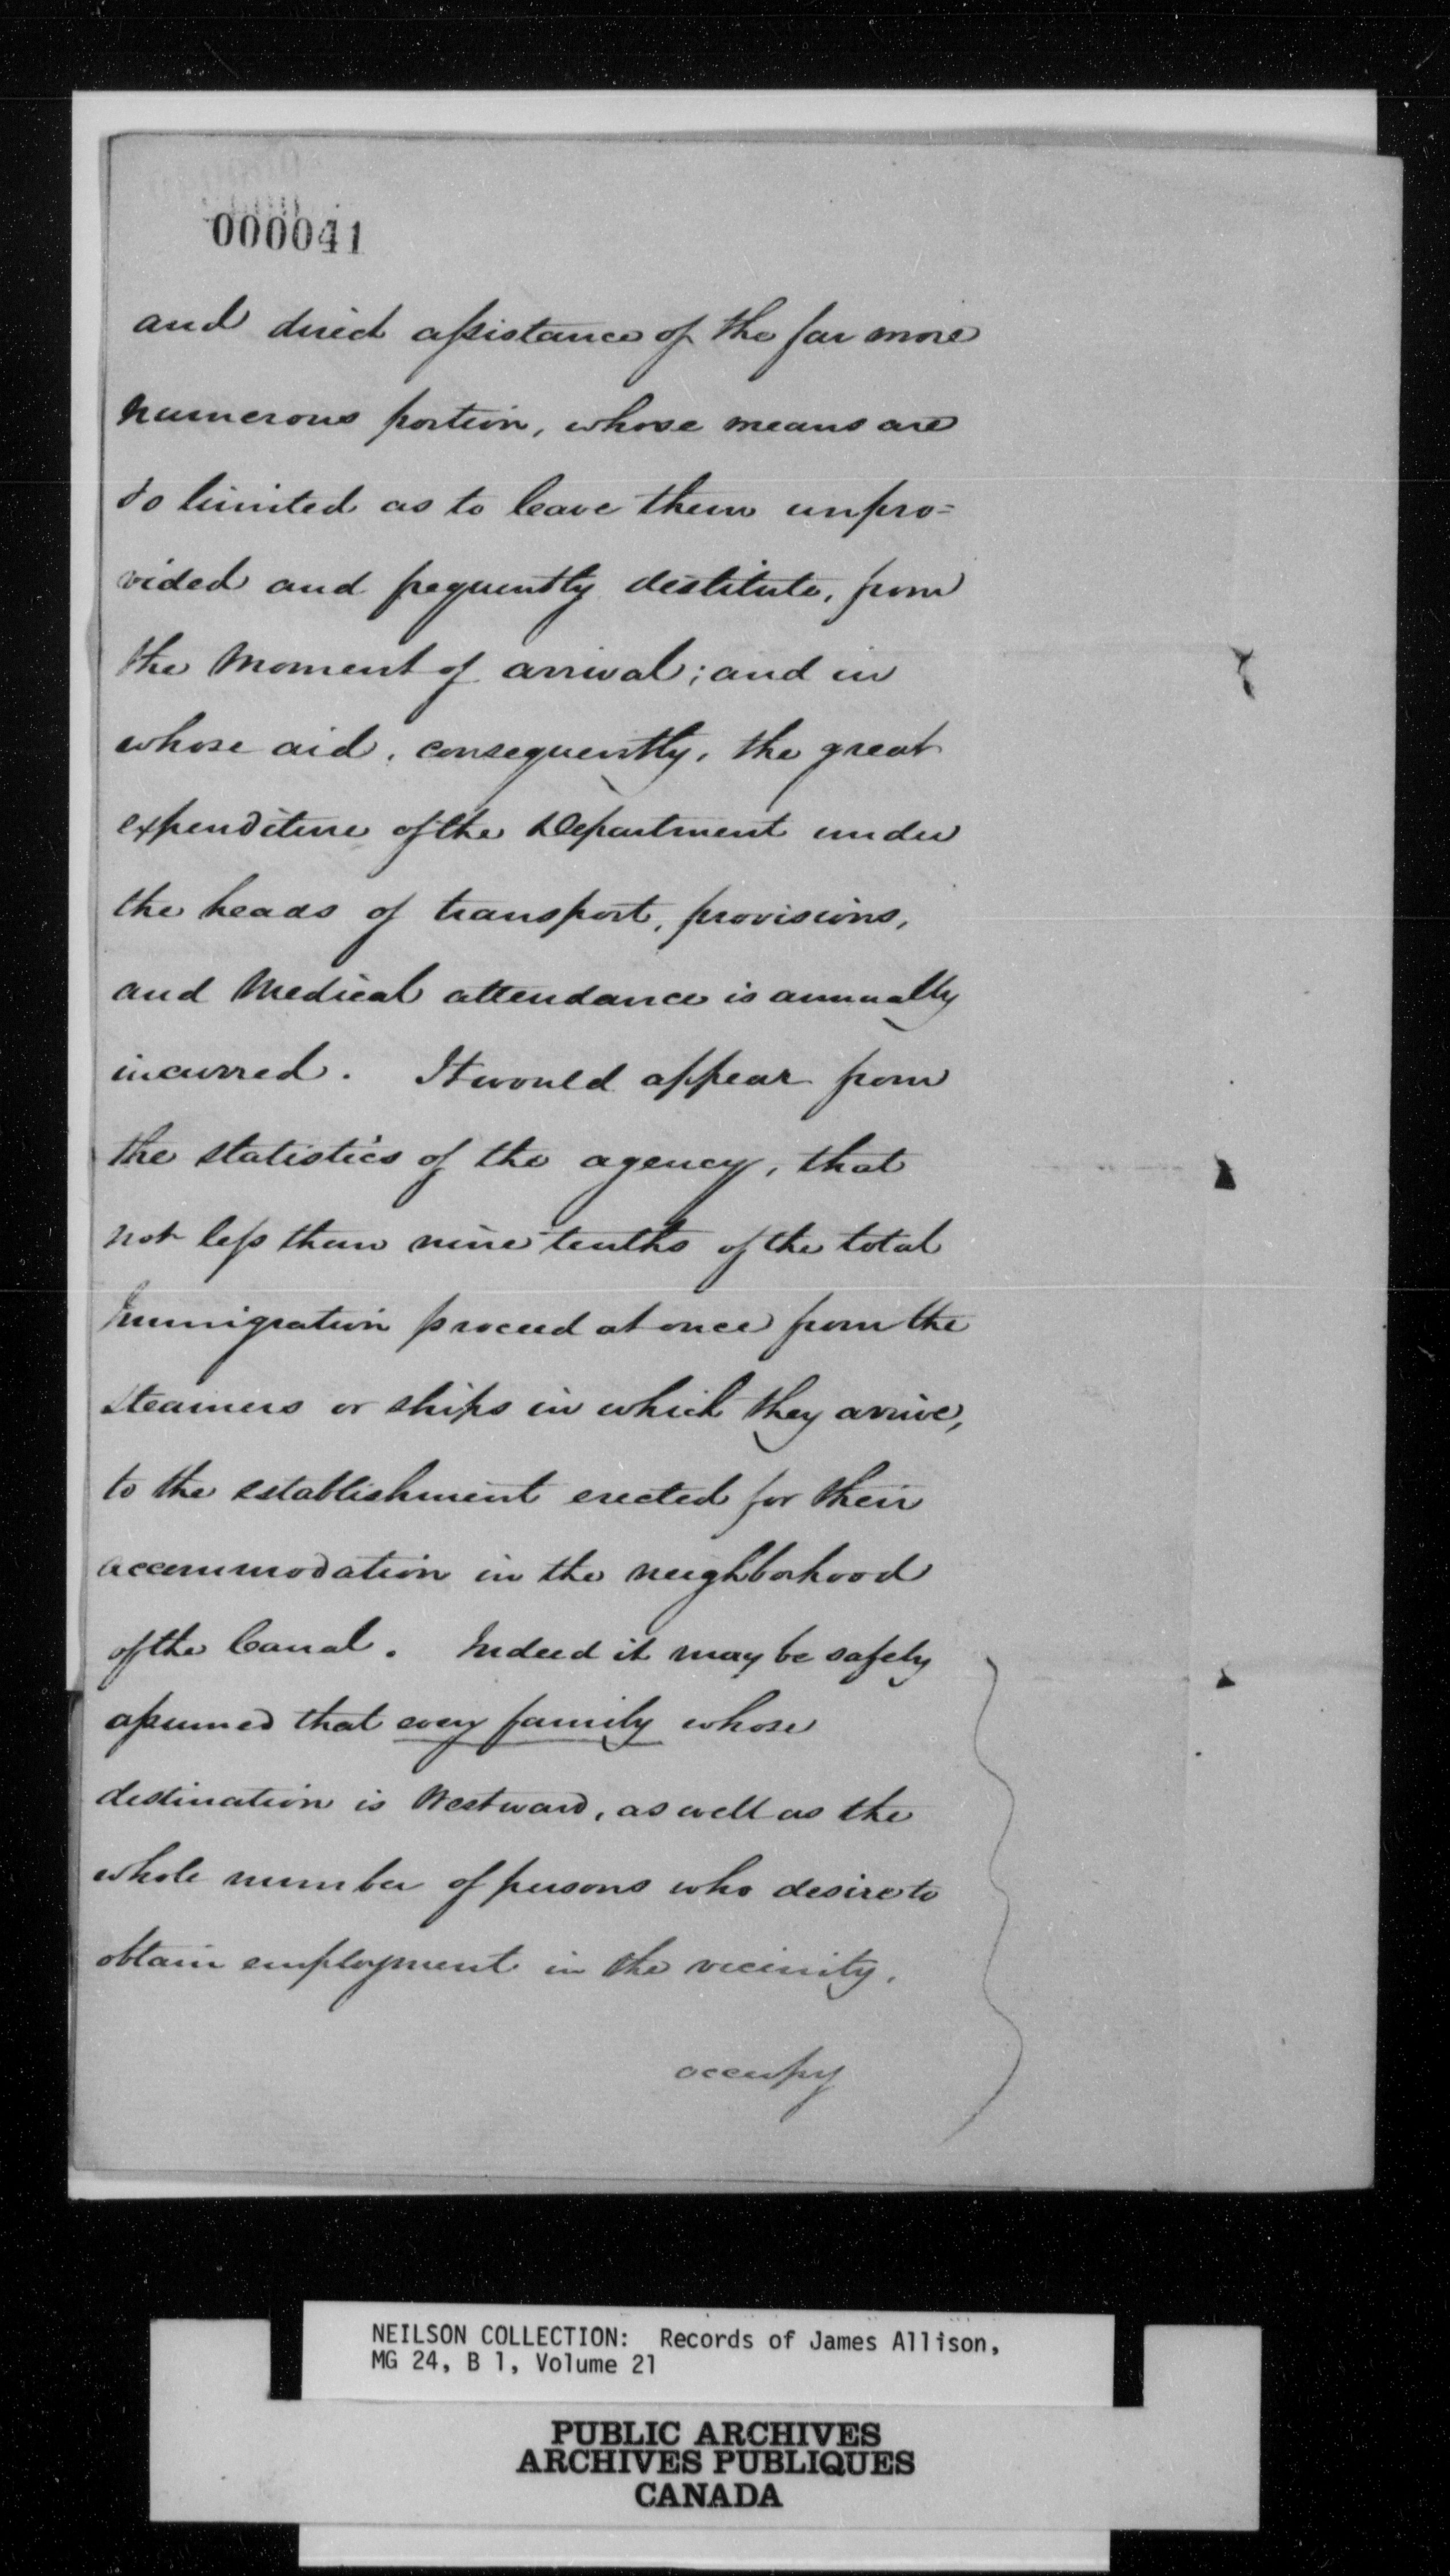 000041
and direct assistance of the far more
numerous portion, whose means are
so limited as to leave them unpro=
vided and frequently destitute, from
the moment of arrival; and in
whose aid, consequently, the great
expenditure of the Department under
the heads of transport, provisions,
and Medical attendance is annually
incurred. It would appear from
the statistics of the agency, that
not less than nine tenths of the total
Immigration proceed at once from the
steamers or ships in which they arrive,
to the establishment erected for their
accommodation in the neighborhood
of the Canal. Indeed it may be safely
assumed that every family whose
destination is Westward, as well as the
whole number of persons who desire to
obtain employment in the vicinity,
occupy
NEILSON COLLECTION: Records of James Allison,
MG 24, B 1, Volume 21
PUBLIC ARCHIVES
ARCHIVES PUBLIQUES
CANADA